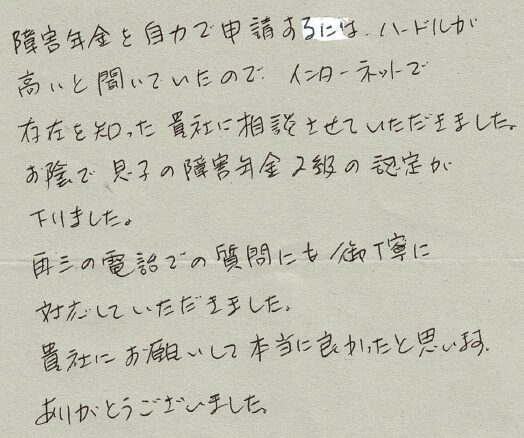 障害年金を自力で申請するには、ハードルが
高いと聞いていたので、インターネットで
存在を知った貴社に相談させていただきました。
お陰で息子の障害年金2級の認定が
下りました。
再三の電話での質問にも御丁寧に
対応していただきました。
貴社にお願いして本当に良かったと思います。
ありがとうございました。